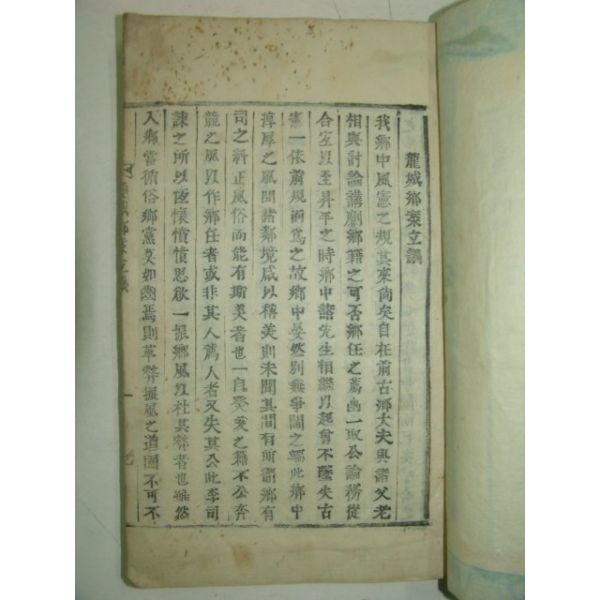 龍城鄉案立議
我鄉中風憲之規其來尙矣自在前古鄉大夫與諸父老
相與討論講劘鄉籍之可否鄉任之薦出一取公論務從
合宜以至昇平之時鄉中諸先生相繼以起曾不墜失古
憲一依前規而篤之故鄉中晏然別無爭鬪之端此鄉中
淳厚之風聞諸鄰境咸以稱美則未聞其間有所謂鄉有
司之糾正風俗而能有斯美者也一自癸亥之籍不公奔
競之風以作鄉任者或非其人薦人者又失其公此李司
諫之所以恆懷憤憤思欲一振鄉風以杜其弊者也雖然
入鄉當循俗鄉黨莫如齒焉則革弊振風之道固不可不
鄉案立議
一